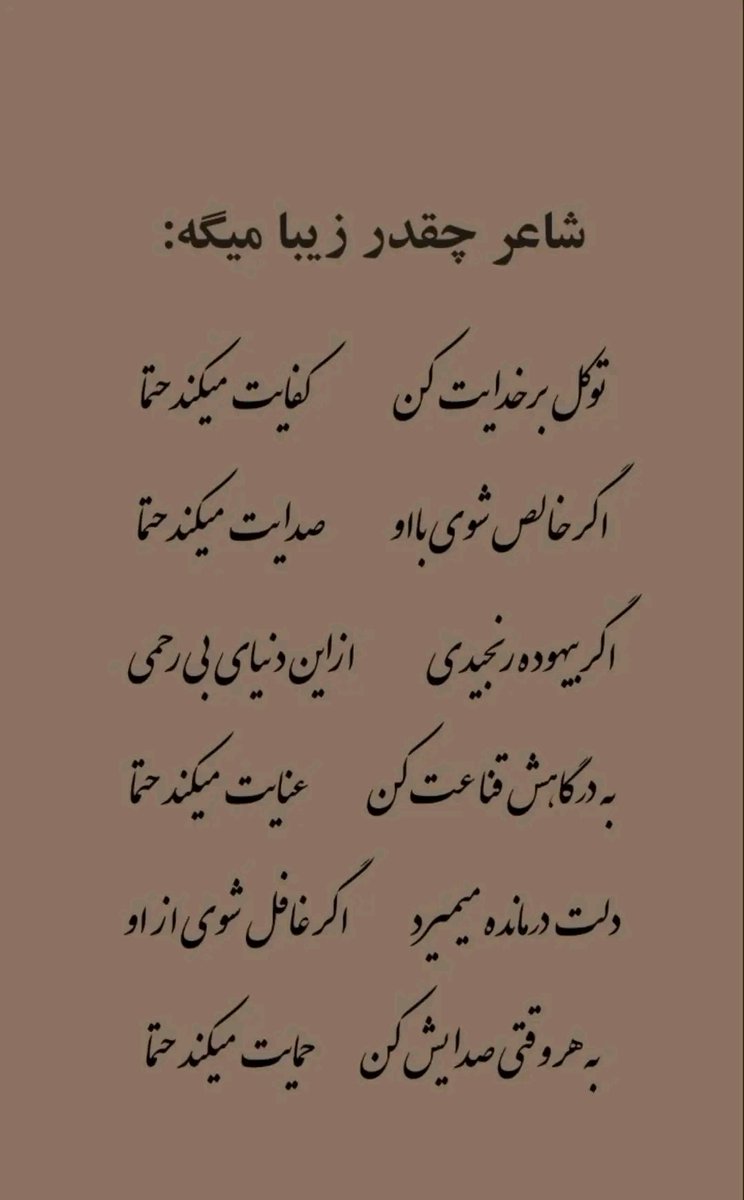 شاعر چقدر زیبا میگه:
توکل بر خدایت کن کفایت میکند حتما
اگر خالص شوی با او صدایت میکند حتما
اگر بیهوده رنجیدی از این دنیای بی رحمی
به درگاهش قناعت کن عنایت میکند حتما
دلت درمانده میمیرد اگر غافل شوی از او
به هر وقتی صدایش کن حمایت میکند حتما